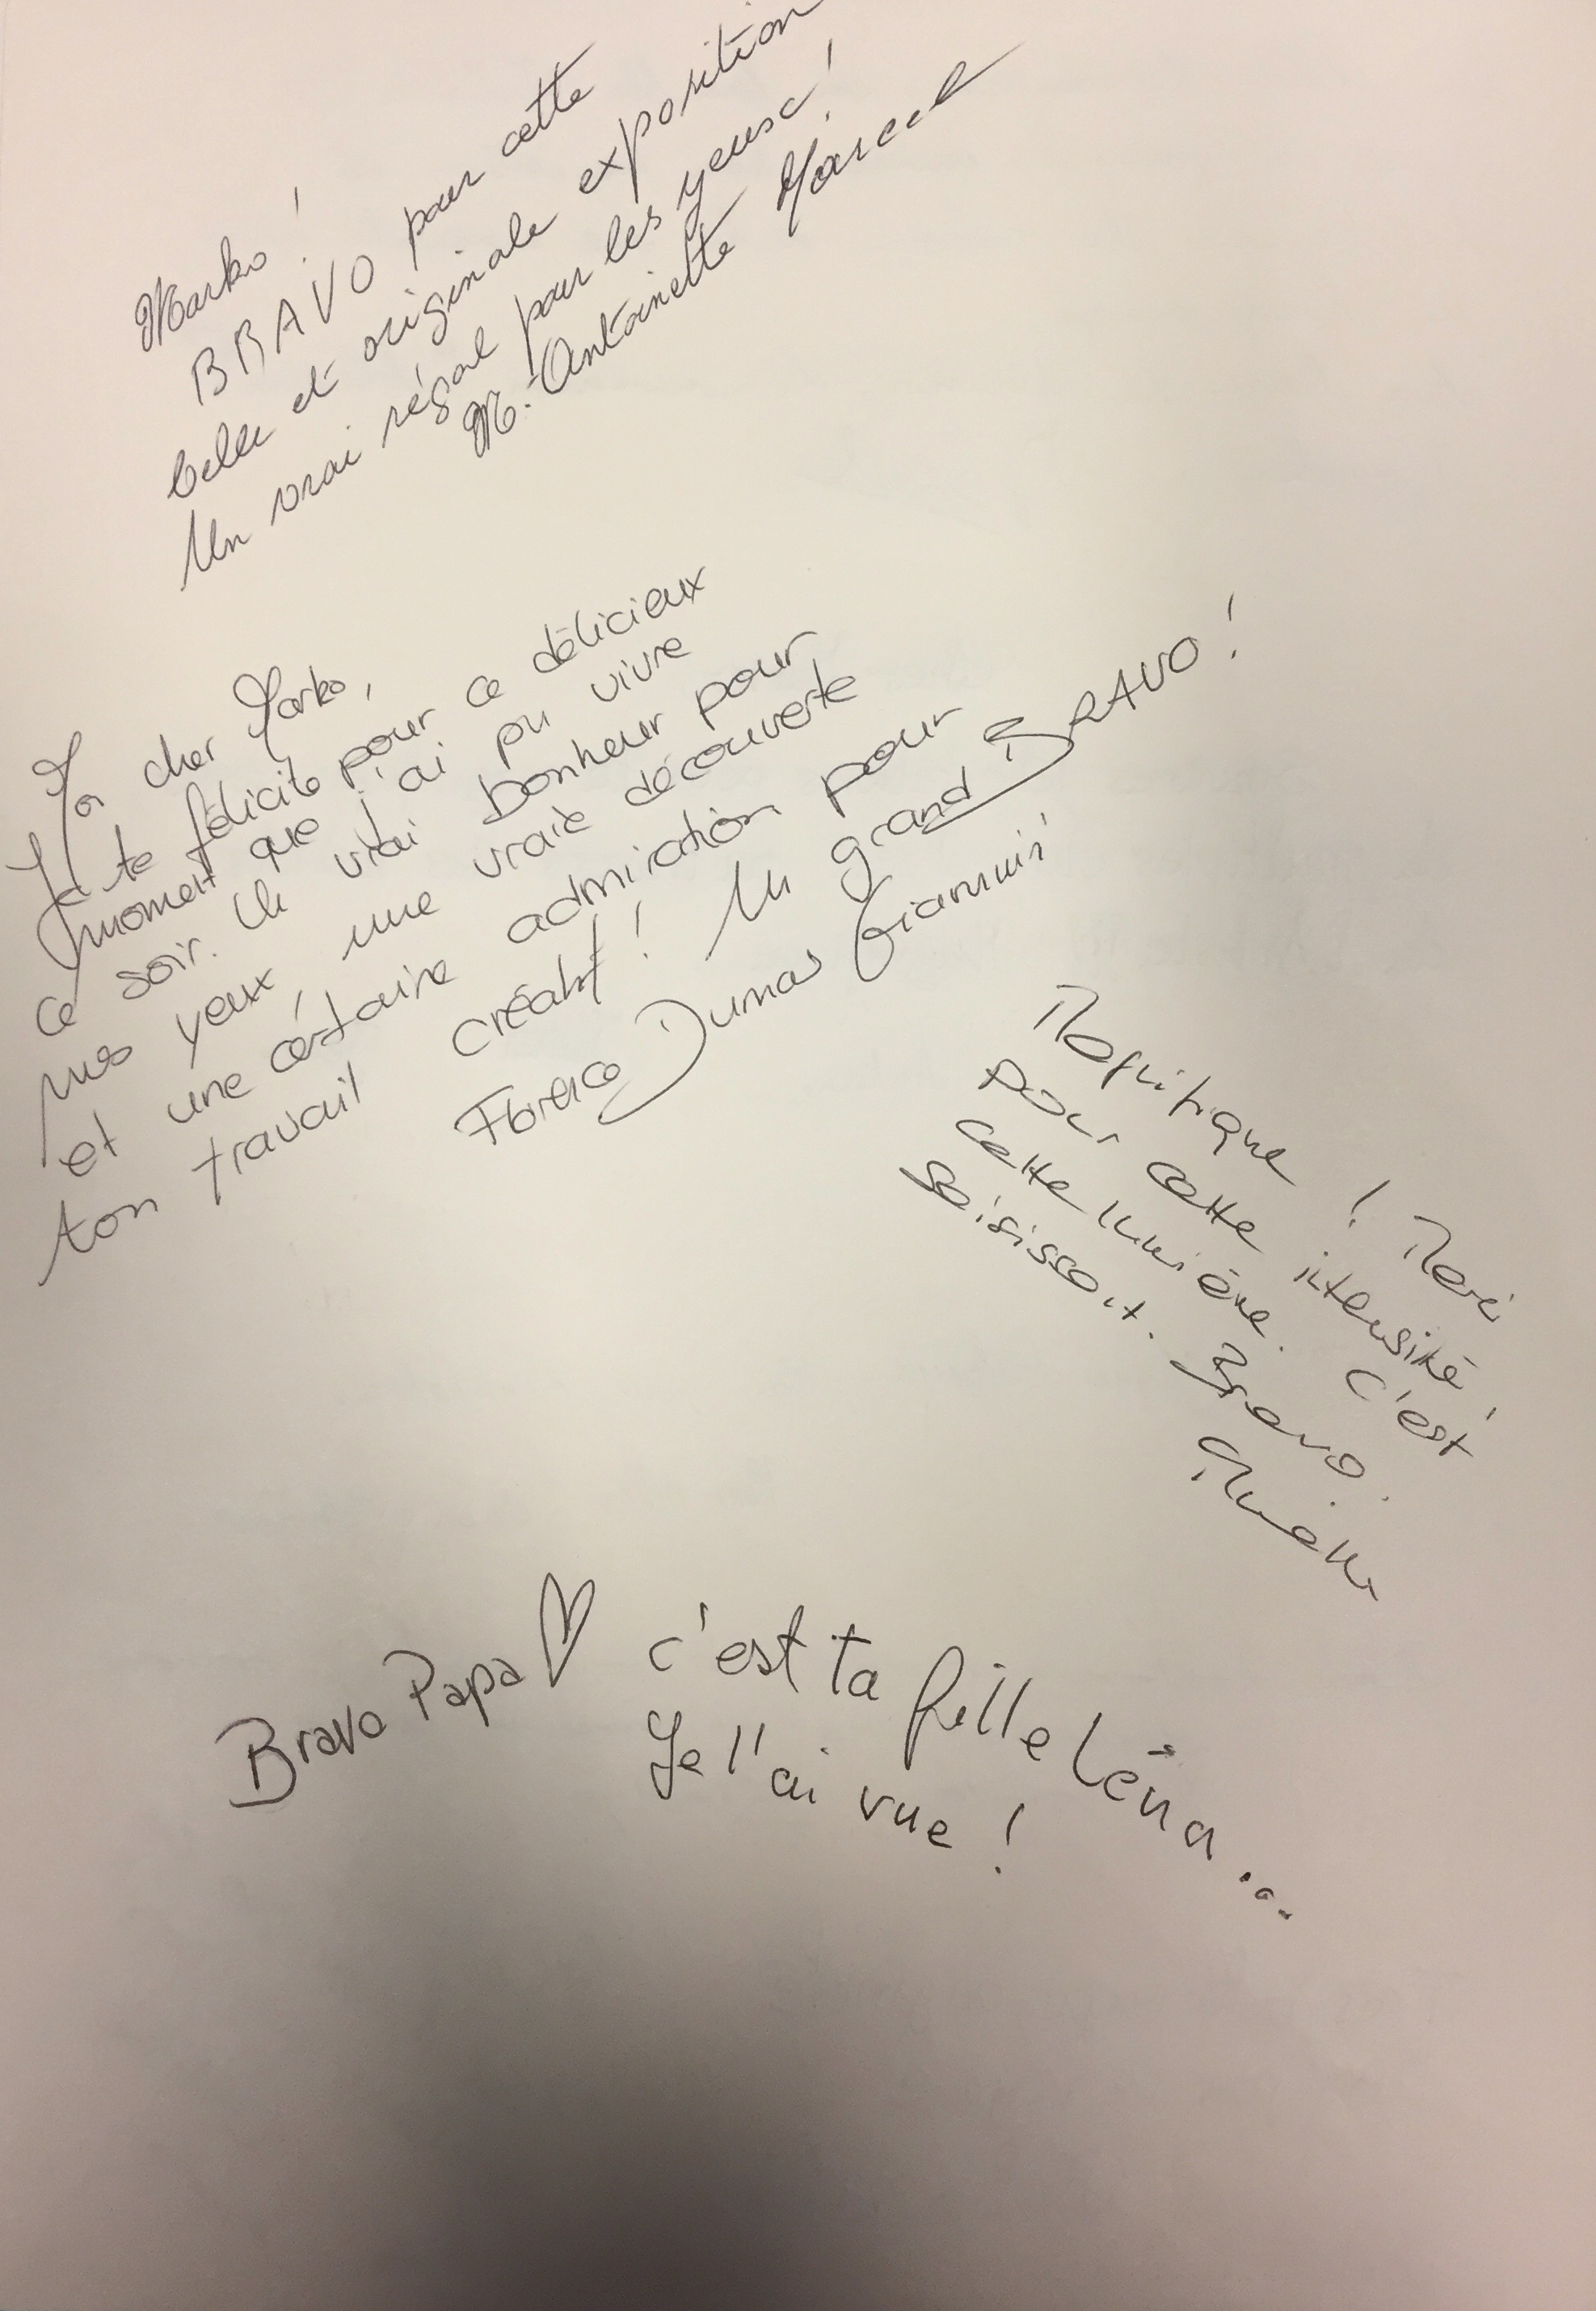 Marko !
BRAVO pour cette
belle et originale exposition
Un vrai régal pour les yeux !
M.-Antoinette Marcel
Mon cher Marko,
Je te félicite pour ce délicieux
moment que j'ai pu vivre
ce soir. Un vrai bonheur pour
mes yeux, une vraie découverte
et une certaine admiration pour
ton travail créatif ! Un grand BRAVO !
Florence Dumas Giannini
Magnifique ! Merci
pour cette intensité,
cette lumière. C'est
saisissant. Bravo.
Bravo Papa
c'est ta fille Léna...
Je l'ai vue !